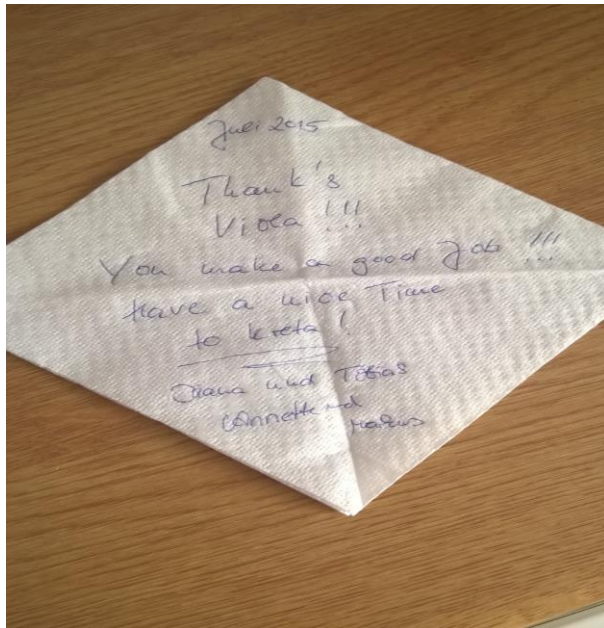 Juli 2015
Thank's
Viola !!!
You make a good Job !!!
have a nice Time
to kreta !
Diana und Tobias
Annette und
Markus